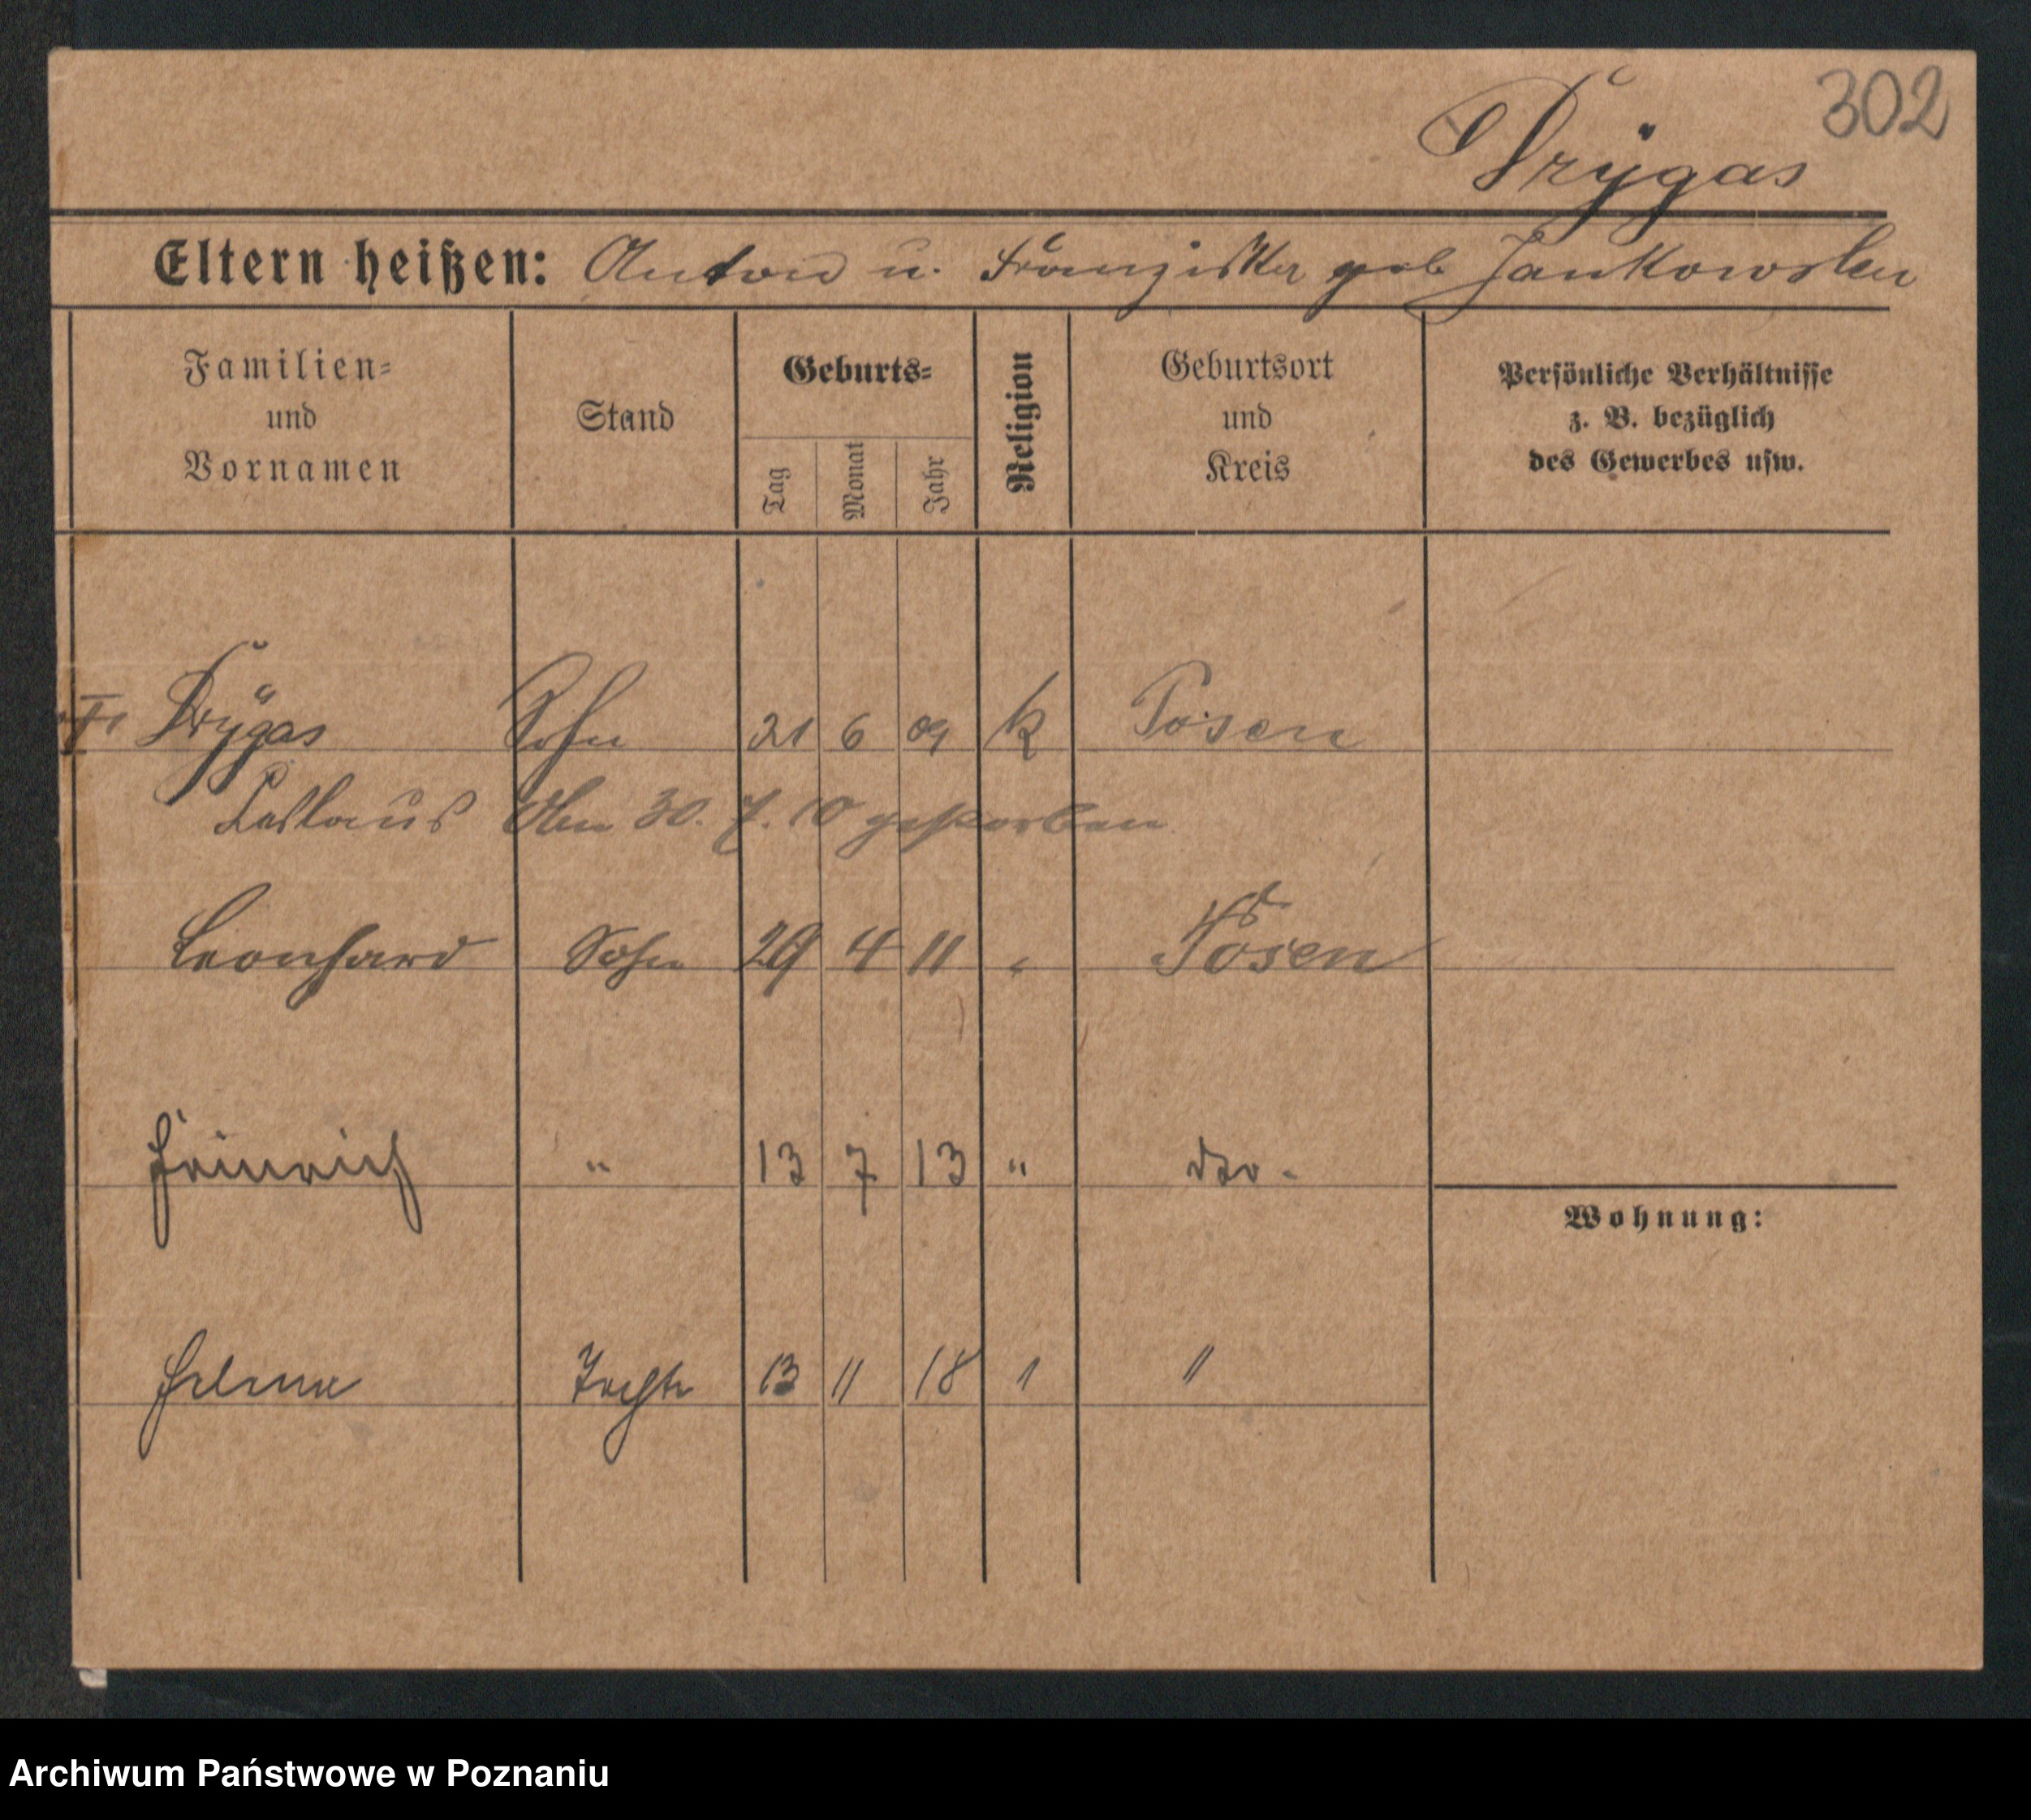 302
Drÿgas
Eltern heißen: Anton u. Franziska geb Jankowska
Familien-
und
Vornamen
Stand
Geburts-
Tag
Monat
Jahr
Religion
Geburtsort
und
Kreis
Persönliche Verhältnisse
z. B. bezüglich
des Gewerbes usw.
Drÿgas Sohn 21 6 09 k Posen
30. 7. 10 gestorben
Leonhard Sohn 29 4 11 " Posen
Heinrich " 13 7 13 " dto.
Wohnung:
Helene Tochter 13 11 18 " "
Archiwum Państwowe w Poznaniu